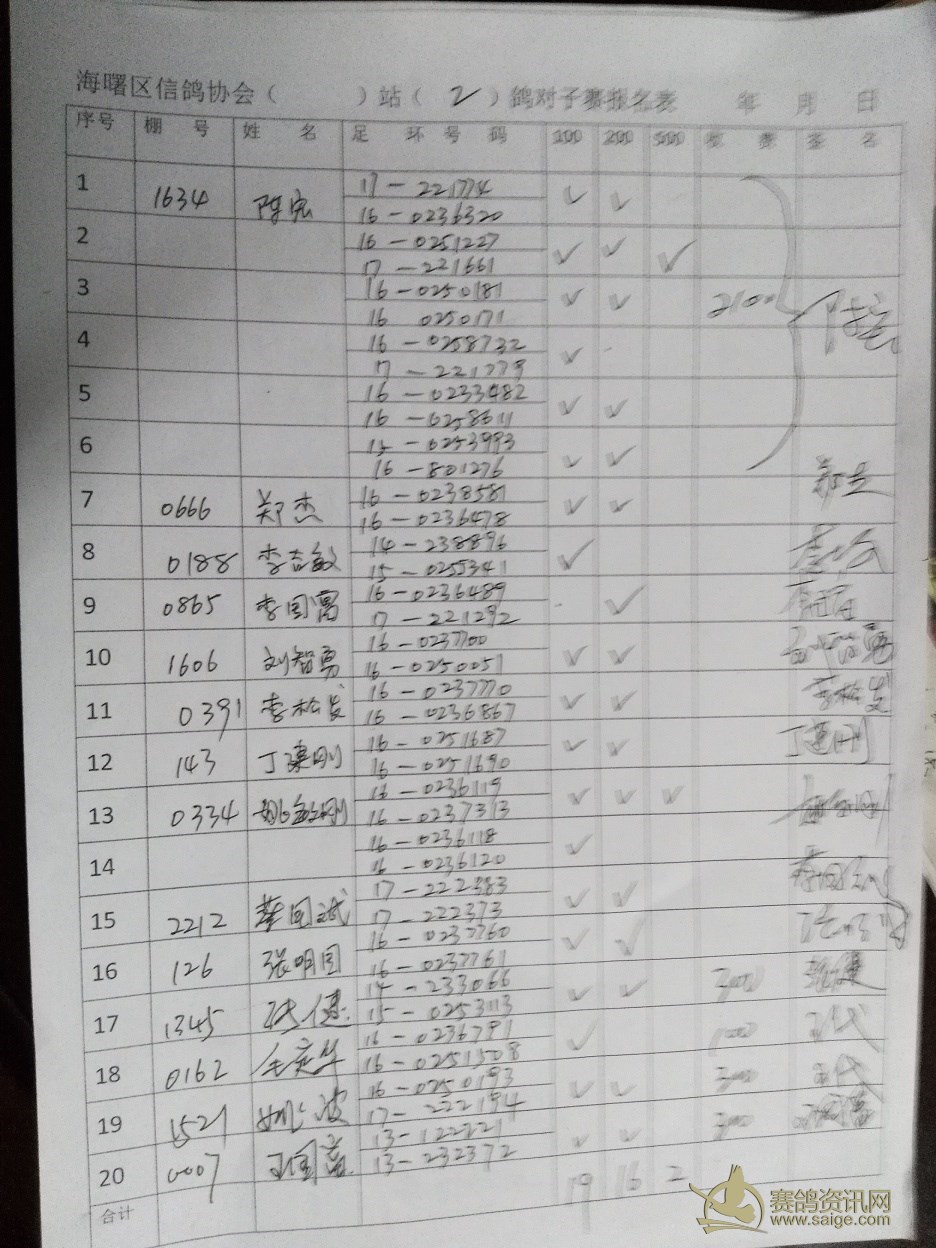 海曙区信鸽协会（ ）站（ 2 ）鸽对子赛报名表 年 月 日
序号 棚 号 姓 名 足 环 号 码 100 200 500 签 名
1 1634 陈宏 17-221774
16-0236320
2 16-0251227
17-221661
3 16-0250181 2100
16 0250171
4 16-0258732
17-221779
5 16-0233482
16-0258611
6 15-0253993
16-801276
7 0666 郑杰 16-0238581
16-0236478
8 0188 李吉敏 14-238896
15-0255341
9 0865 李国富 16-0236489
17-221292
10 1606 刘智勇 16-0237700
16-0250051
11 0391 李松发 16-0237770 李松发
16-0236867
12 143 丁建刚 16-0251687 丁建刚
16-0251690
13 0334 16-0236119
16-0237313
14 16-0236118
16-0236120
15 2212 17-222383
17-222373
16 126 张明国 16-0237760
16-0237761
17 1345 张健 14-233066 300
15-0253113
18 0162 16-0236791 100
16-0251508
19 1521 姚波 16-0250193 300
17-222194
20 0007 13-122221 300
13-232372
合计 19 16 2
赛鸽资讯网
www.saige.com